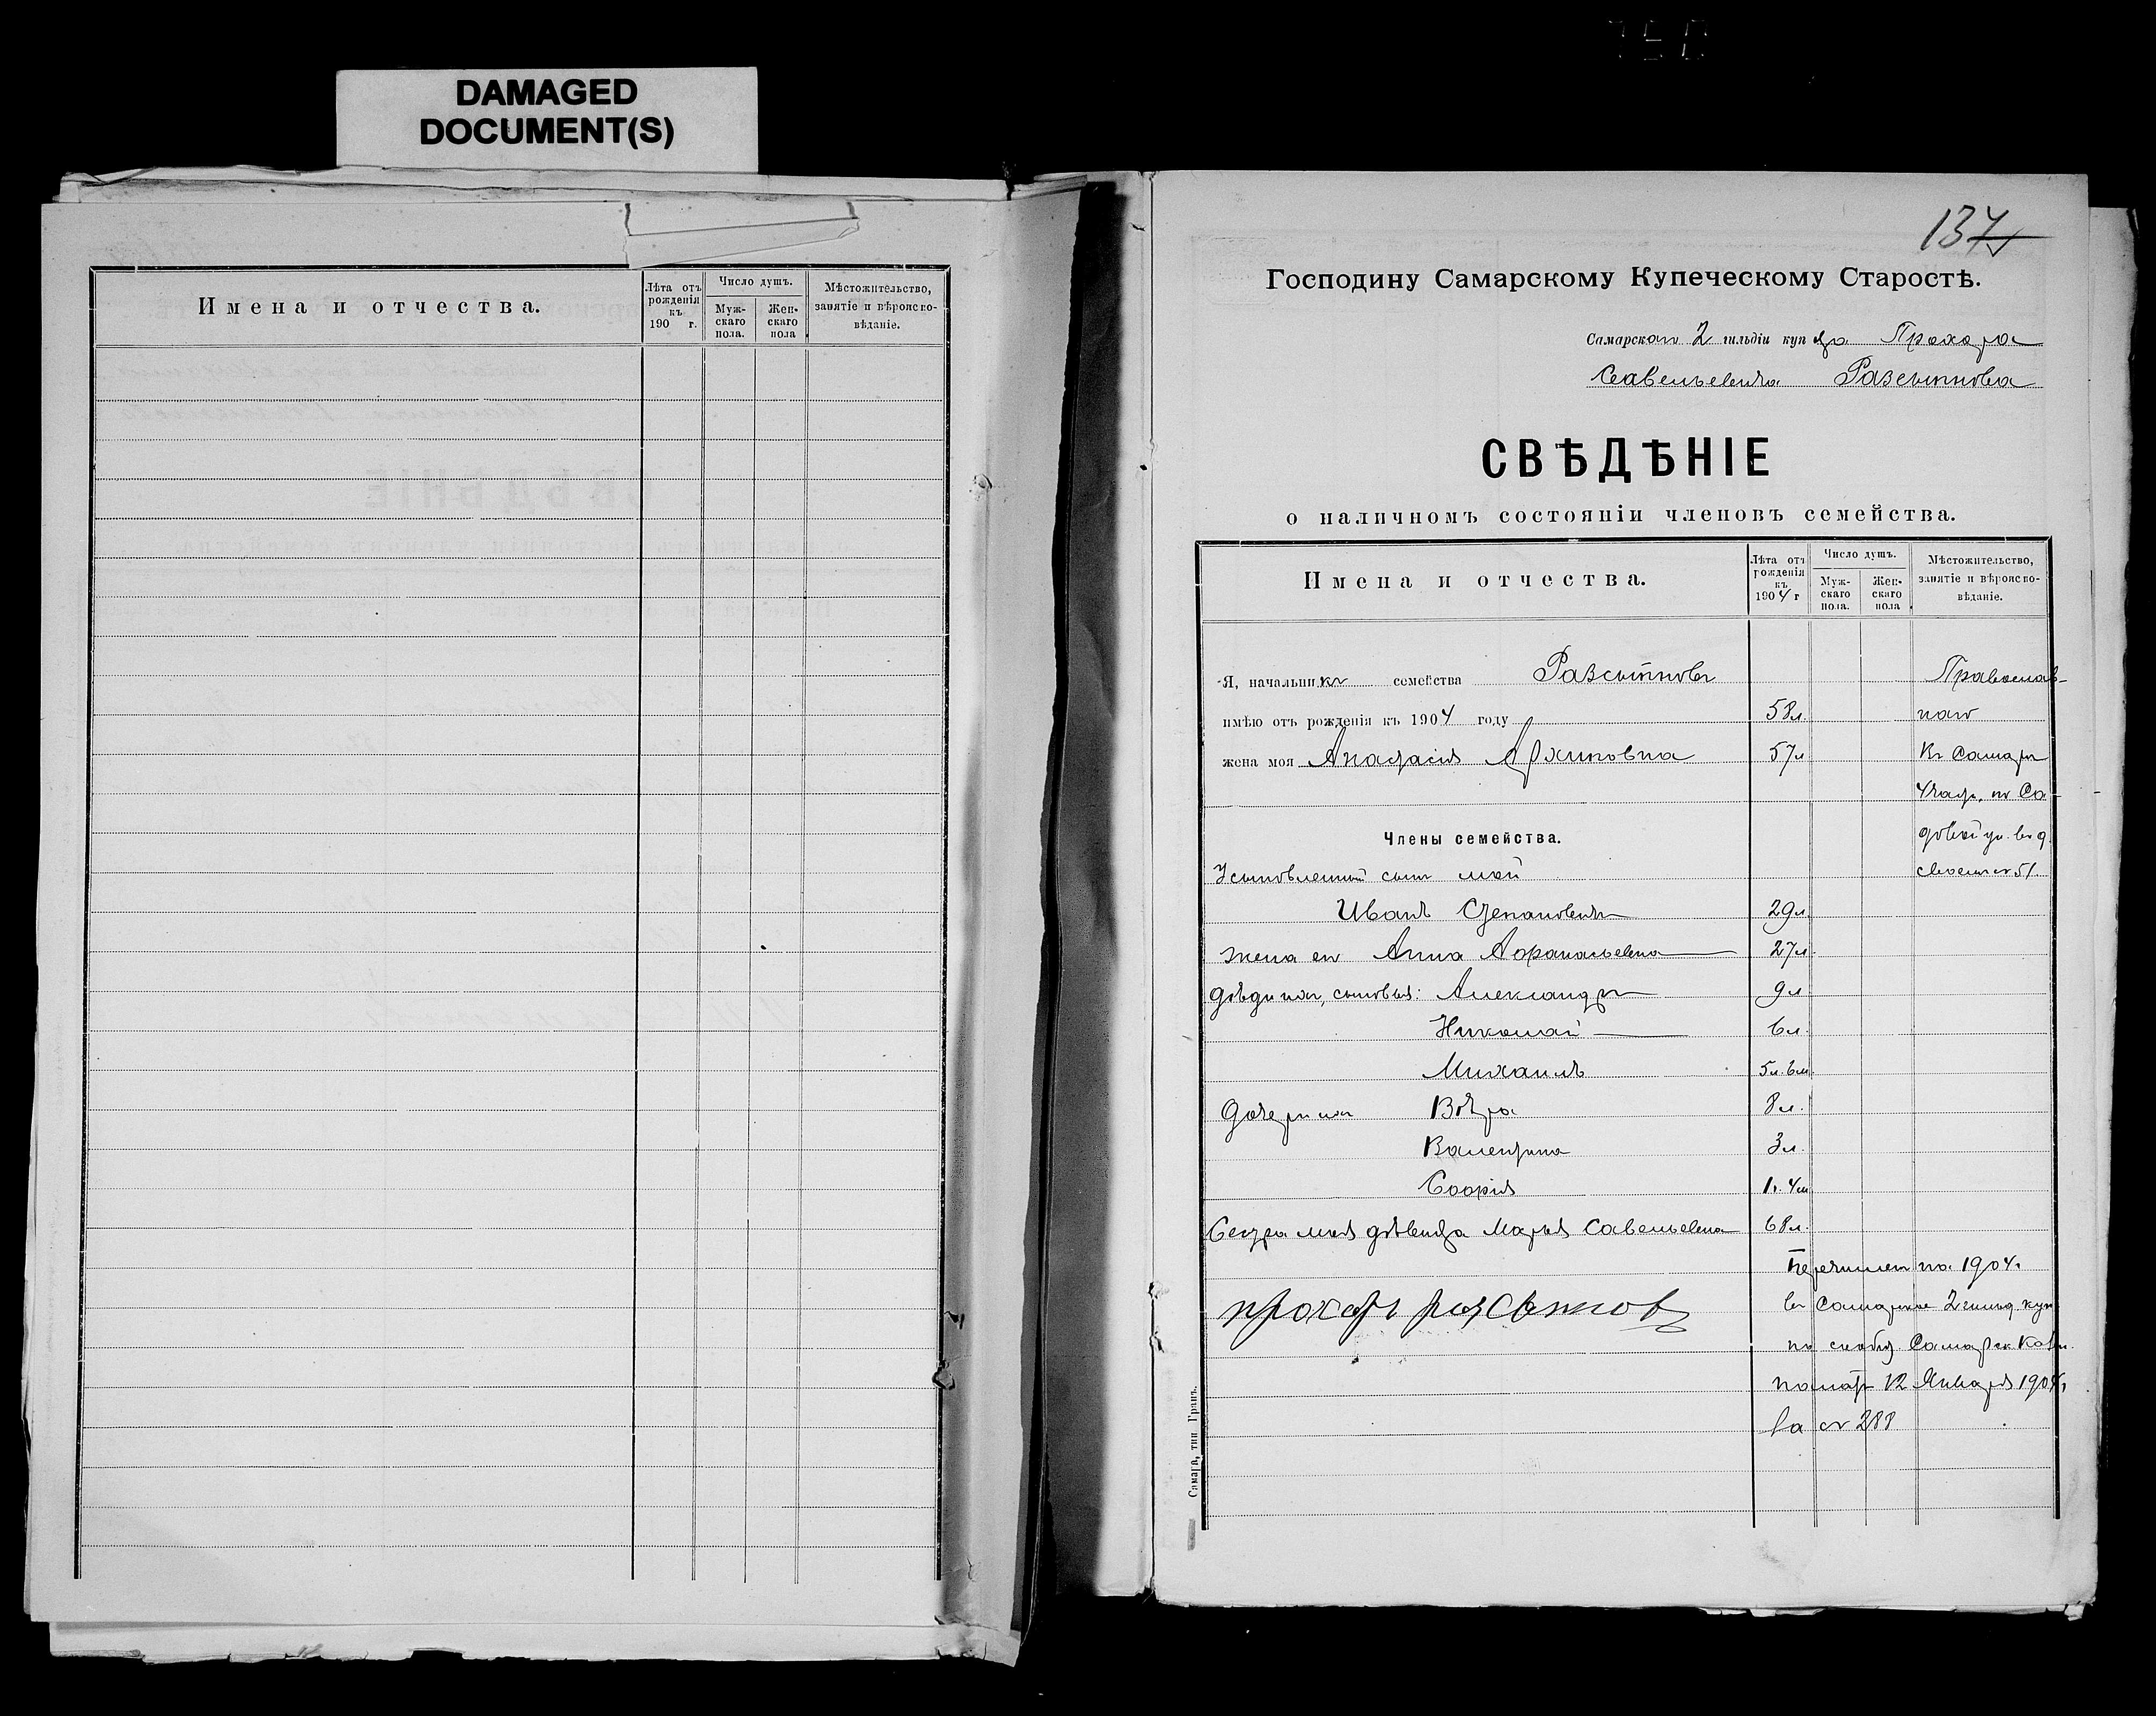 DAMAGED
DOCUMENT(S)
Имена и отчества.
Лѣта отъ рожденія къ 190 г.
Число душъ.
Мужскаго пола.
Женскаго пола
Мѣстожительство, занятіе и вѣроисповѣданіе.
137
Господину Самарскому Купеческому Старостѣ.
Самарскаго 2 гильдіи купца Прохора
Савельевича Разсыпнова
СВѢДѢНІЕ
о наличномъ состояніи членовъ семейства.
Имена и отчества.
Лѣта отъ рожденія къ 1904 г
Число душъ.
Мужскаго пола.
Женскаго пола
Мѣстожительство, занятіе и вѣроисповѣданіе.
Я, начальникъ семейства Разсыпновъ Православ-
имѣю отъ рожденія къ 1904 году 58 л. наго
жена моя Анастасія Архиповна 57 л Въ Самарѣ
4 част. по Са-
Члены семейства. довой ул. въ д.
Усыновленный сынъ мой 51.
Иванъ Степановичъ 29 л.
жена его Анна 27 л.
сыновья: Александръ 9 л
Николай 6 л.
Михаилъ 5 л. 6 м.
Дочери ихъ Вѣра 8 л.
Валентина 3 л.
Софія 1 г. 4 м
Сестра моя дѣвица Марья Савельевна 68 л.
Перечисленъ на 1904 г.
прохоръ разсыпнов въ Самарскіе 2 гильд. куп
по Самарск. Казен.
палаты 12 Января 1904 г.
за № 288
Самара, тип. Гранъ.